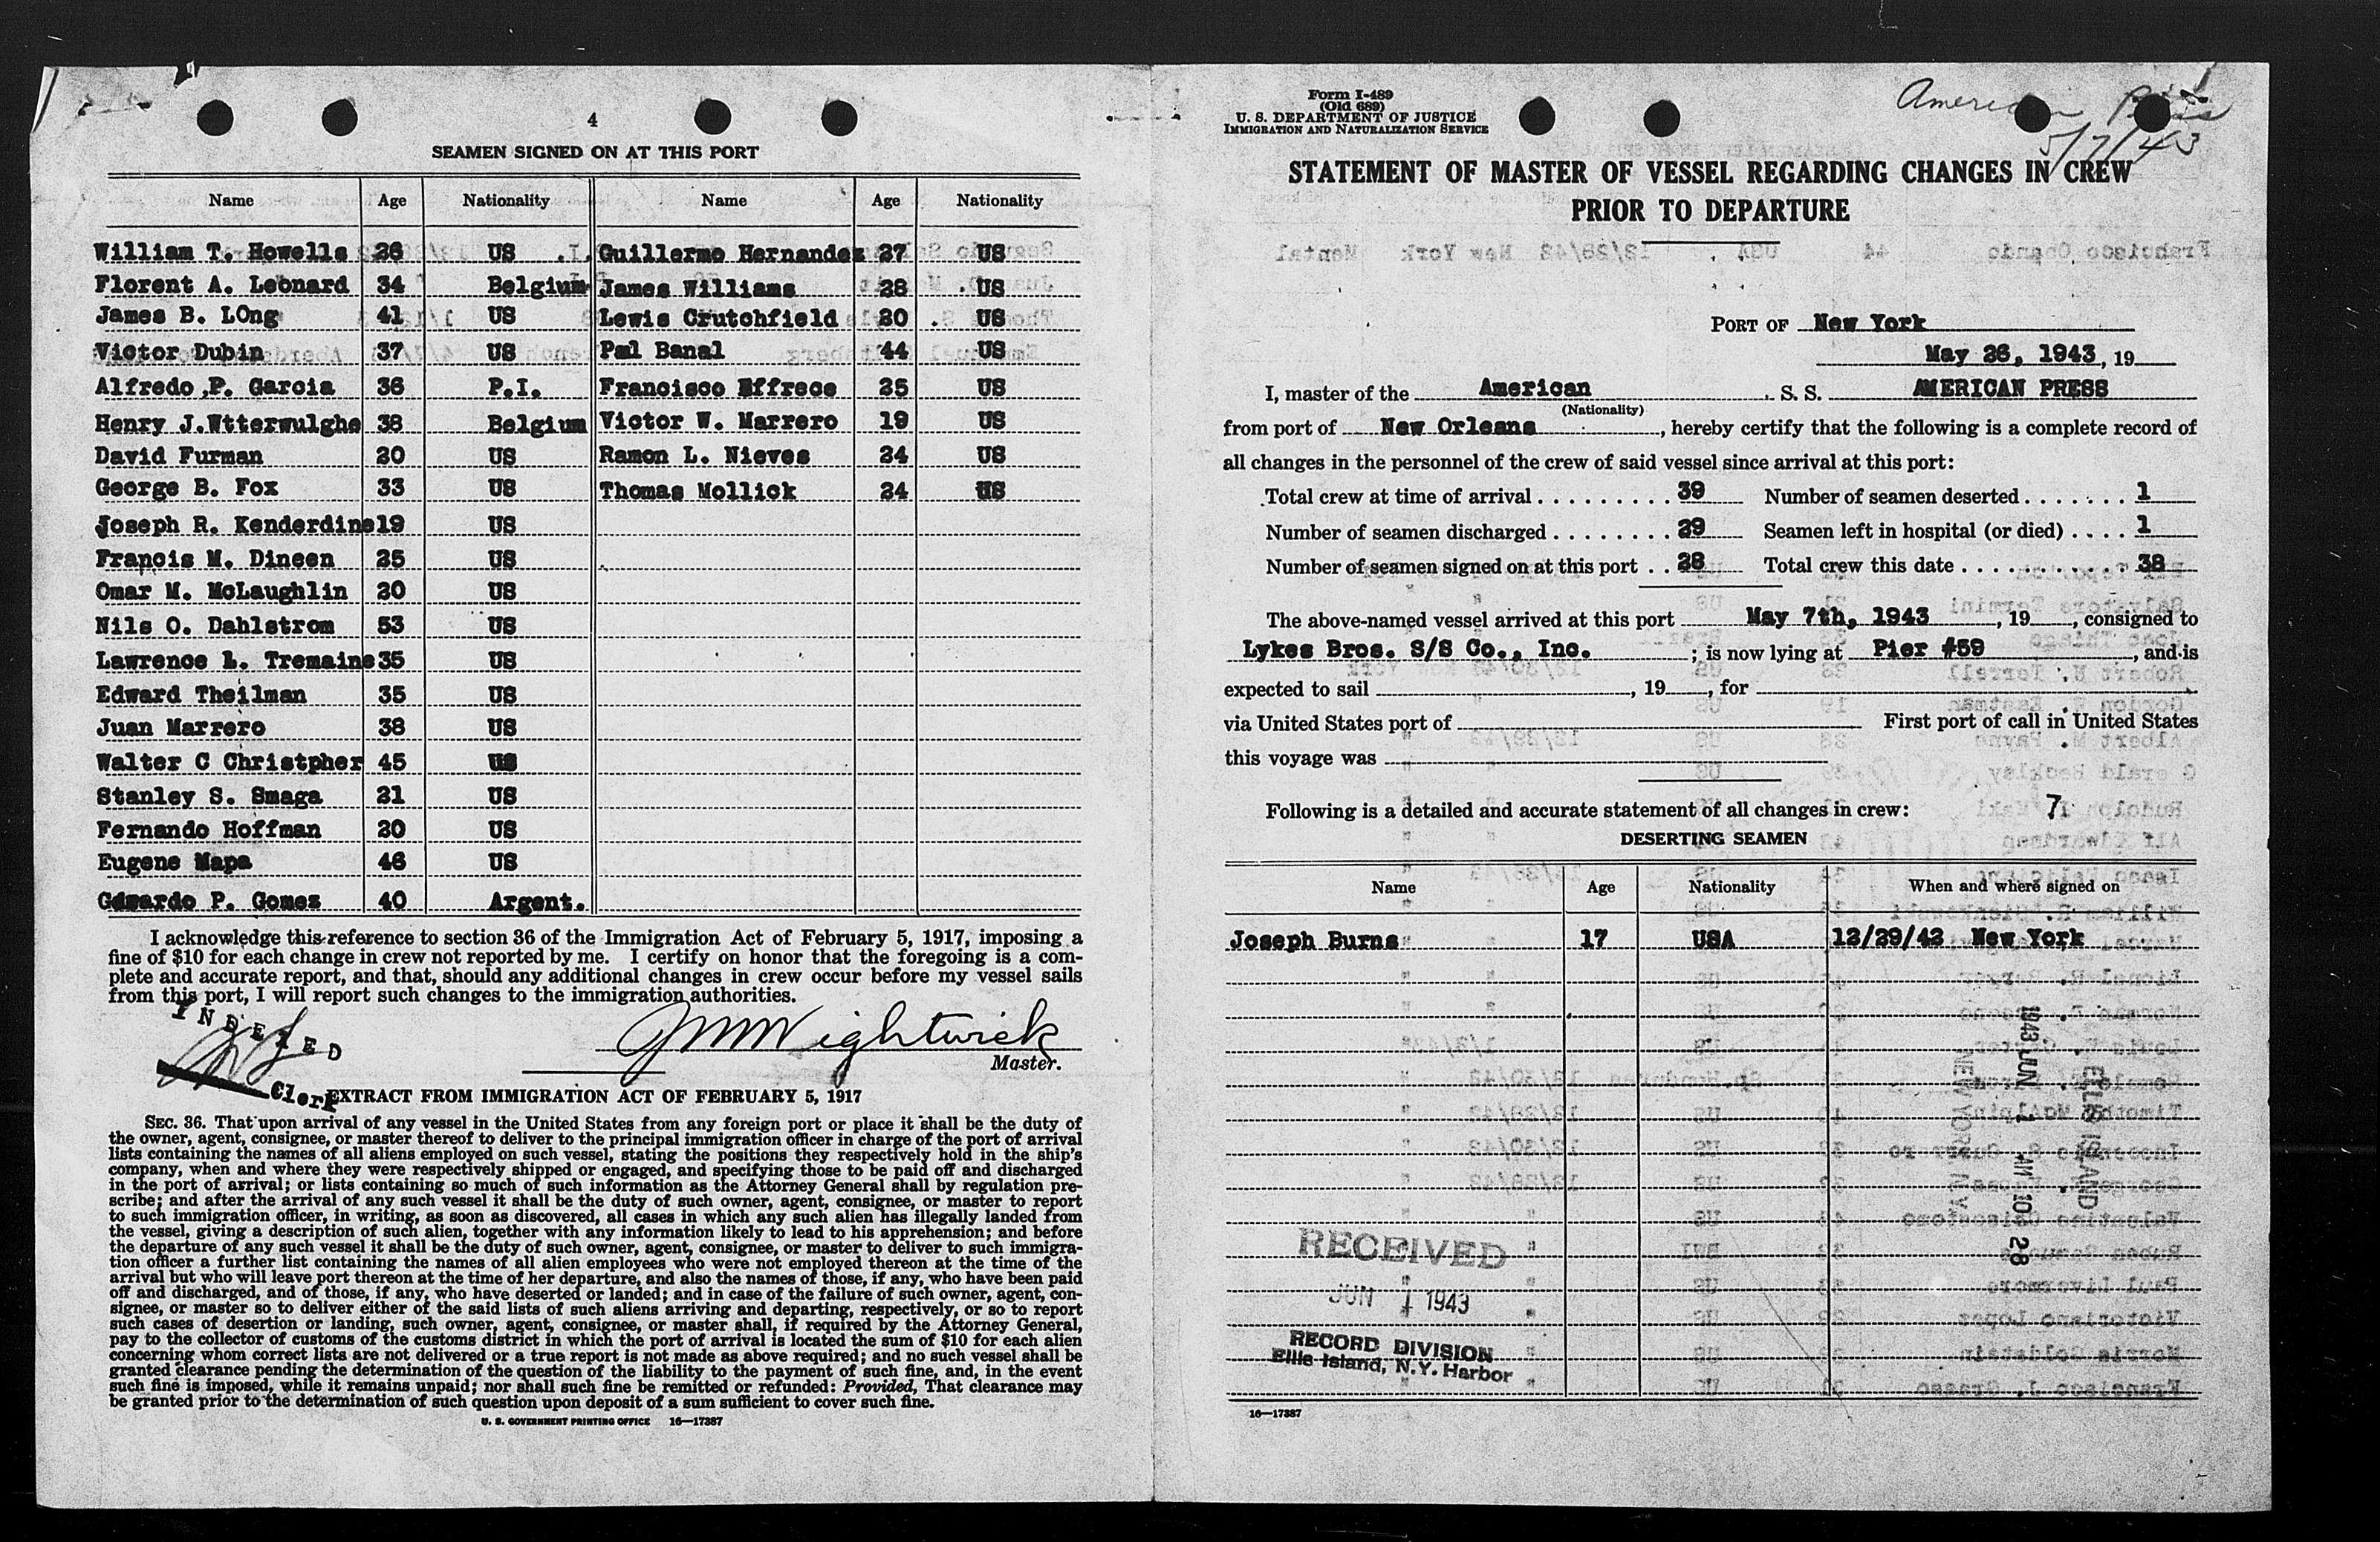 4
SEAMEN SIGNED ON AT THIS PORT
Name Age Nationality Name Age Nationality
William T. Howells 26 US Guillermo Hernandez 27 US
Florent A. Leonard 34 Belgium James Williams 28 US
James B. LOng 41 US Lewis Crutchfield 20 US
Victor Dubin 37 US Paul Banal 44 US
Alfredo P. Garcia 36 P.I. Francisco Effrece 25 US
Henry J.Wtterwulghe 38 Belgium Victor W. Marrero 19 US
David Furman 20 US Ramon L. Nieves 24 US
George B. Fox 33 US Thomas Mollick 24 US
Joseph R. Kenderdine 19 US
Francis M. Dineen 25 US
Omar M. McLaughlin 20 US
Nils O. Dahlstrom 53 US
Lawrence L. Tremaine 35 US
Edward Theilman 35 US
Juan Marrero 38 US
Walter C Christpher 45 US
Stanley S. Smaga 21 US
Fernando Hoffman 20 US
Eugene Mapa 46 US
P. Gomez 40 Argent.
I acknowledge this reference to section 36 of the Immigration Act of February 5, 1917, imposing a
fine of $10 for each change in crew not reported by me. I certify on honor that the foregoing is a com-
plete and accurate report, and that, should any additional changes in crew occur before my vessel sails
from this port, I will report such changes to the immigration authorities.
INDEXED
Clerk
JMWightwick
Master.
EXTRACT FROM IMMIGRATION ACT OF FEBRUARY 5, 1917
SEC. 36. That upon arrival of any vessel in the United States from any foreign port or place it shall be the duty of
the owner, agent, consignee, or master thereof to deliver to the principal immigration officer in charge of the port of arrival
lists containing the names of all aliens employed on such vessel, stating the positions they respectively hold in the ship's
company, when and where they were respectively shipped or engaged, and specifying those to be paid off and discharged
in the port of arrival; or lists containing so much of such information as the Attorney General shall by regulation pre-
scribe; and after the arrival of any such vessel it shall be the duty of such owner, agent, consignee, or master to report
to such immigration officer, in writing, as soon as discovered, all cases in which any such alien has illegally landed from
the vessel, giving a description of such alien, together with any information likely to lead to his apprehension; and before
the departure of any such vessel it shall be the duty of such owner, agent, consignee, or master to deliver to such immigra-
tion officer a further list containing the names of all alien employees who were not employed thereon at the time of the
arrival but who will leave port thereon at the time of her departure, and also the names of those, if any, who have been paid
off and discharged, and of those, if any, who have deserted or landed; and in case of the failure of such owner, agent, con-
signee, or master so to deliver either of the said lists of such aliens arriving and departing, respectively, or so to report
such cases of desertion or landing, such owner, agent, consignee, or master shall, if required by the Attorney General,
pay to the collector of customs of the customs district in which the port of arrival is located the sum of $10 for each alien
concerning whom correct lists are not delivered or a true report is not made as above required; and no such vessel shall be
granted clearance pending the determination of the question of the liability to the payment of such fine, and, in the event
such fine is imposed, while it remains unpaid; nor shall such fine be remitted or refunded: Provided, That clearance may
be granted prior to the determination of such question upon deposit of a sum sufficient to cover such fine.
U. S. GOVERNMENT PRINTING OFFICE 16—17387
Form I-489
(Old 689)
U. S. DEPARTMENT OF JUSTICE
IMMIGRATION AND NATURALIZATION SERVICE
American Press
5/7/43
STATEMENT OF MASTER OF VESSEL REGARDING CHANGES IN CREW
PRIOR TO DEPARTURE
PORT OF New York
May 26, 1943, 19
I, master of the American S. S. AMERICAN PRESS
(Nationality)
from port of New Orleans, hereby certify that the following is a complete record of
all changes in the personnel of the crew of said vessel since arrival at this port:
Total crew at time of arrival 39 Number of seamen deserted 1
Number of seamen discharged 29 Seamen left in hospital (or died) 1
Number of seamen signed on at this port 28 Total crew this date 38
The above-named vessel arrived at this port May 7th, 1943, 19, consigned to
Lykes Bros. S/S Co., Inc. ; is now lying at Pier #59, and is
expected to sail , 19 , for
via United States port of First port of call in United States
this voyage was
Following is a detailed and accurate statement of all changes in crew: 7
DESERTING SEAMEN
Name Age Nationality When and where signed on
Joseph Burns 17 USA 12/29/42 New York
1943 JUN 1 AM 10 28
ELLIS ISLAND
NEW YORK N.Y.
RECEIVED
JUN 1 1943
RECORD DIVISION
Ellis Island, N.Y. Harbor
16—17387